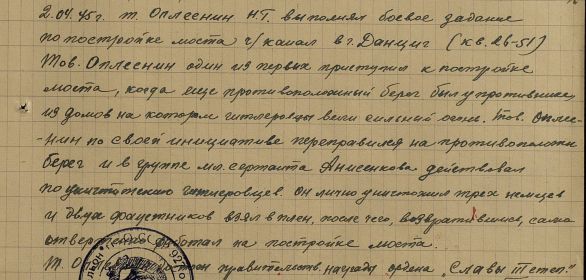 2.04.45г. т. Оплеснин Н.Т. выполнял боевое задание
по постройке моста ч/канал в г. Данциг (кв. 26-51)
Тов. Оплеснин один из первых приступил к постройке
моста, когда еще противоположный берег был у противника,
из домов на котором гитлеровцы вели сильный огонь. Тов. Оплес-
-нин по своей инициативе переправился на противоположн
берег и в группе мл. сержанта Анисенкова действовал
по уничтожению гитлеровцев. Он лично уничтожил трех немцев
и двух фаустников взял в плен, после чего, возвратившись, само
отверженно работал на постройке моста.
Т. О правительств. награды ордена „Славы